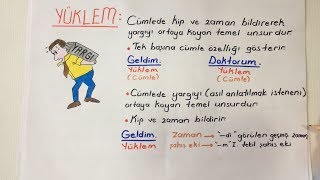 YÜKLEM:
Cümlede kip ve zaman bildirerek
yargıyı ortaya koyan temel unsurdur.
• Tek başına cümle özelliği gösterir
Geldim. Doktorum.
Yüklem Yüklem
(Cümle) (Cümle)
YARGI
• Cümlede yargıyı (asıl anlatılmak isteneni)
ortaya koyan temel unsurdur
• Kip ve zaman bildirir
Geldim. Zaman → "-di" görülen geçmiş zaman
Yüklem şahıs eki → "-m" I. tekil şahıs eki